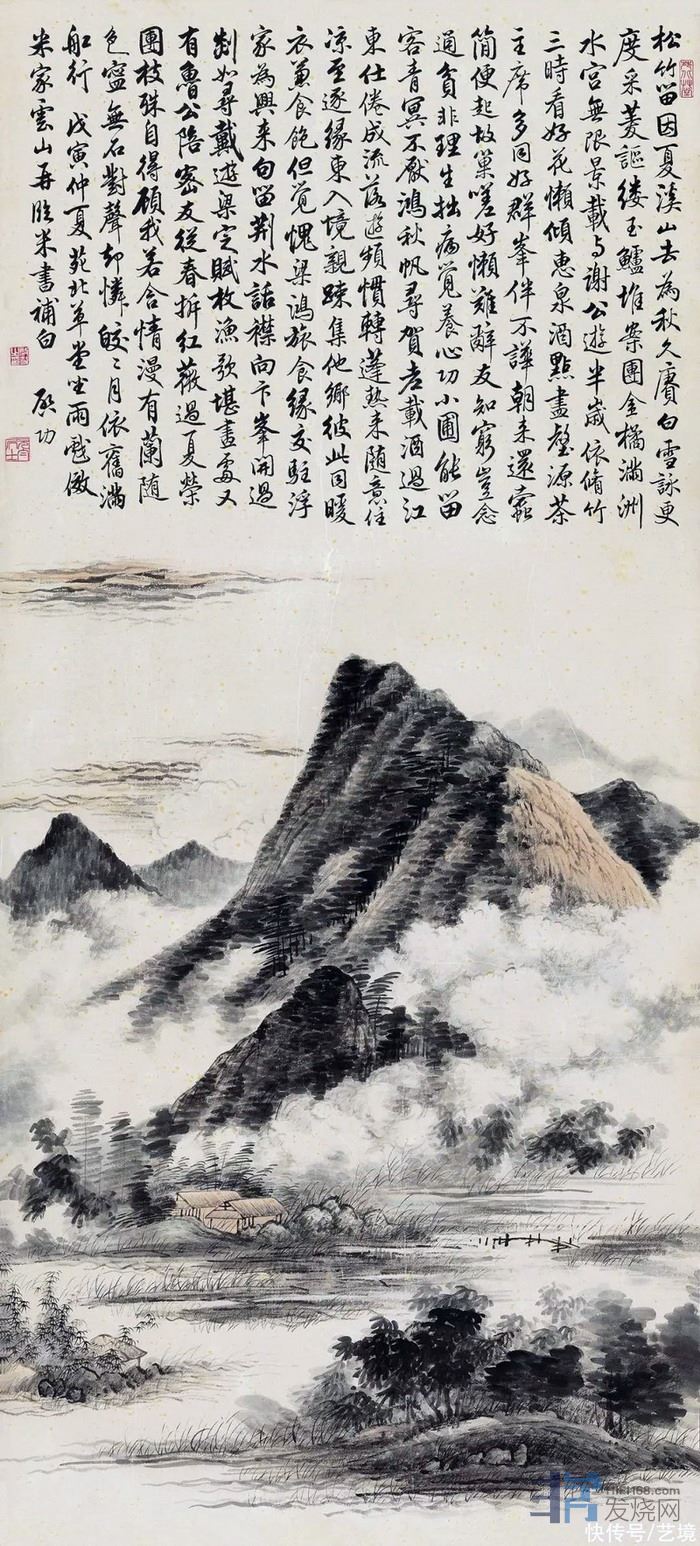 松竹留因夏溪山去為秋久賡白雪詠更
度采菱謳縷玉鱸堆案團金橘滿洲
水宮無限景載与謝公遊半歲依脩竹
三時看好花懶傾惠泉酒點盡壑源茶
主席多同好群峯伴不譁朝来還蠹
簡便起故巢嗟好懶難辭友知窮豈念
通貧非理生拙病覺養心功小圃能留
客青冥不厭鴻秋帆尋賀老載酒過江
東仕倦成流落遊頻慣轉蓬热来随意住
涼至逐緣東入境親疎集他鄉彼此同暖
衣兼食飽但覺愧梁鴻旅食緣交駐浮
家為興来句留荆水話襟向卞峯開過
剡如尋戴遊梁定賦枚漁歌堪畫處又
有魯公陪密友從春拆紅薇過夏榮
團枝殊自得顧我若含情漫有蘭随
色寧無石對聲却憐皎々月依舊滿
舡行 戊寅仲夏苑北草堂坐雨戲倣
米家雲山再臨米書補白 啟功
发烧网
快传号/艺境